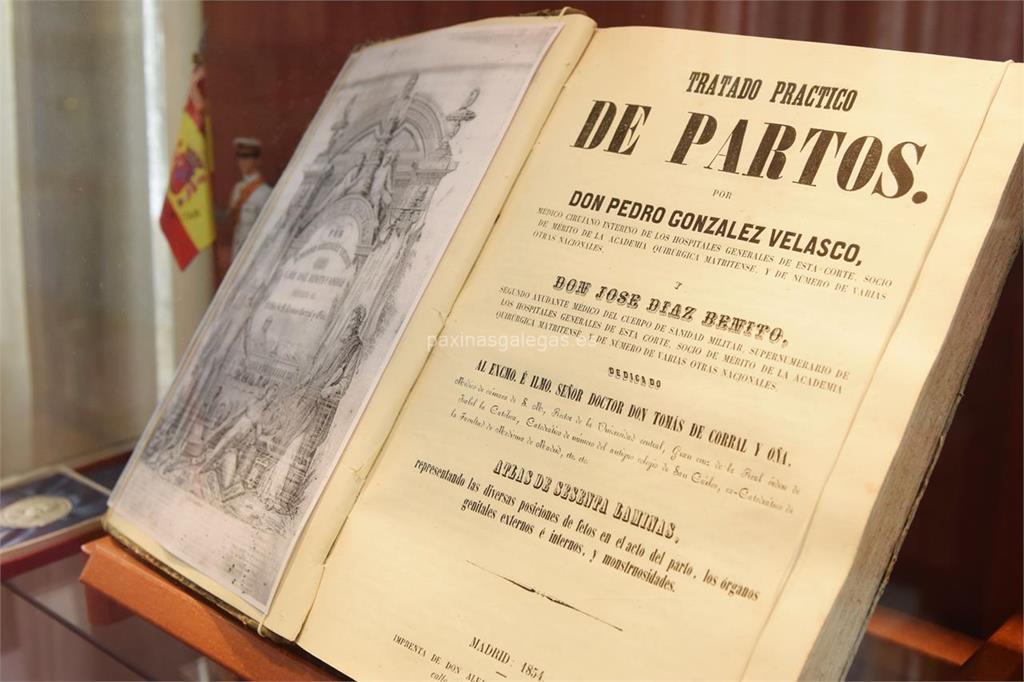 TRATADO PRACTICO
DE PARTOS.
POR
DON PEDRO GONZALEZ VELASCO,
MÉDICO CIRUJANO INTERINO DE LOS HOSPITALES GENERALES DE ESTA CORTE, SOCIO
DE MÉRITO DE LA ACADEMIA QUIRÚRGICA MATRITENSE, Y DE NÚMERO DE VARIAS
OTRAS NACIONALES.
Y
DON JOSE DIAZ BENITO,
SEGUNDO AYUDANTE MÉDICO DEL CUERPO DE SANIDAD MILITAR, SUPERNUMERARIO DE
LOS HOSPITALES GENERALES DE ESTA CORTE, SOCIO DE MÉRITO DE LA ACADEMIA
QUIRÚRGICA MATRITENSE, Y DE NÚMERO DE VARIAS OTRAS NACIONALES.
paxinasgalegas.es
DEDICADO
AL EXCMO. É ILMO. SEÑOR DOCTOR DON TOMÁS DE CORRAL Y OÑA,
Médico de cámara de S. M., Rector de la Universidad central, Gran cruz de la Real órden de
Isabel la Católica, Catedrático de número del antiguo colegio de San Cárlos, ex-Catedrático de
la Facultad de Medicina de Madrid, etc. etc.
ATLAS DE SESENTA LAMINAS,
representando las diversas posiciones de fetos en el acto del parto, los órganos
genitales externos é internos, y monstruosidades.
MADRID: 1854.
IMPRENTA DE DON
calle